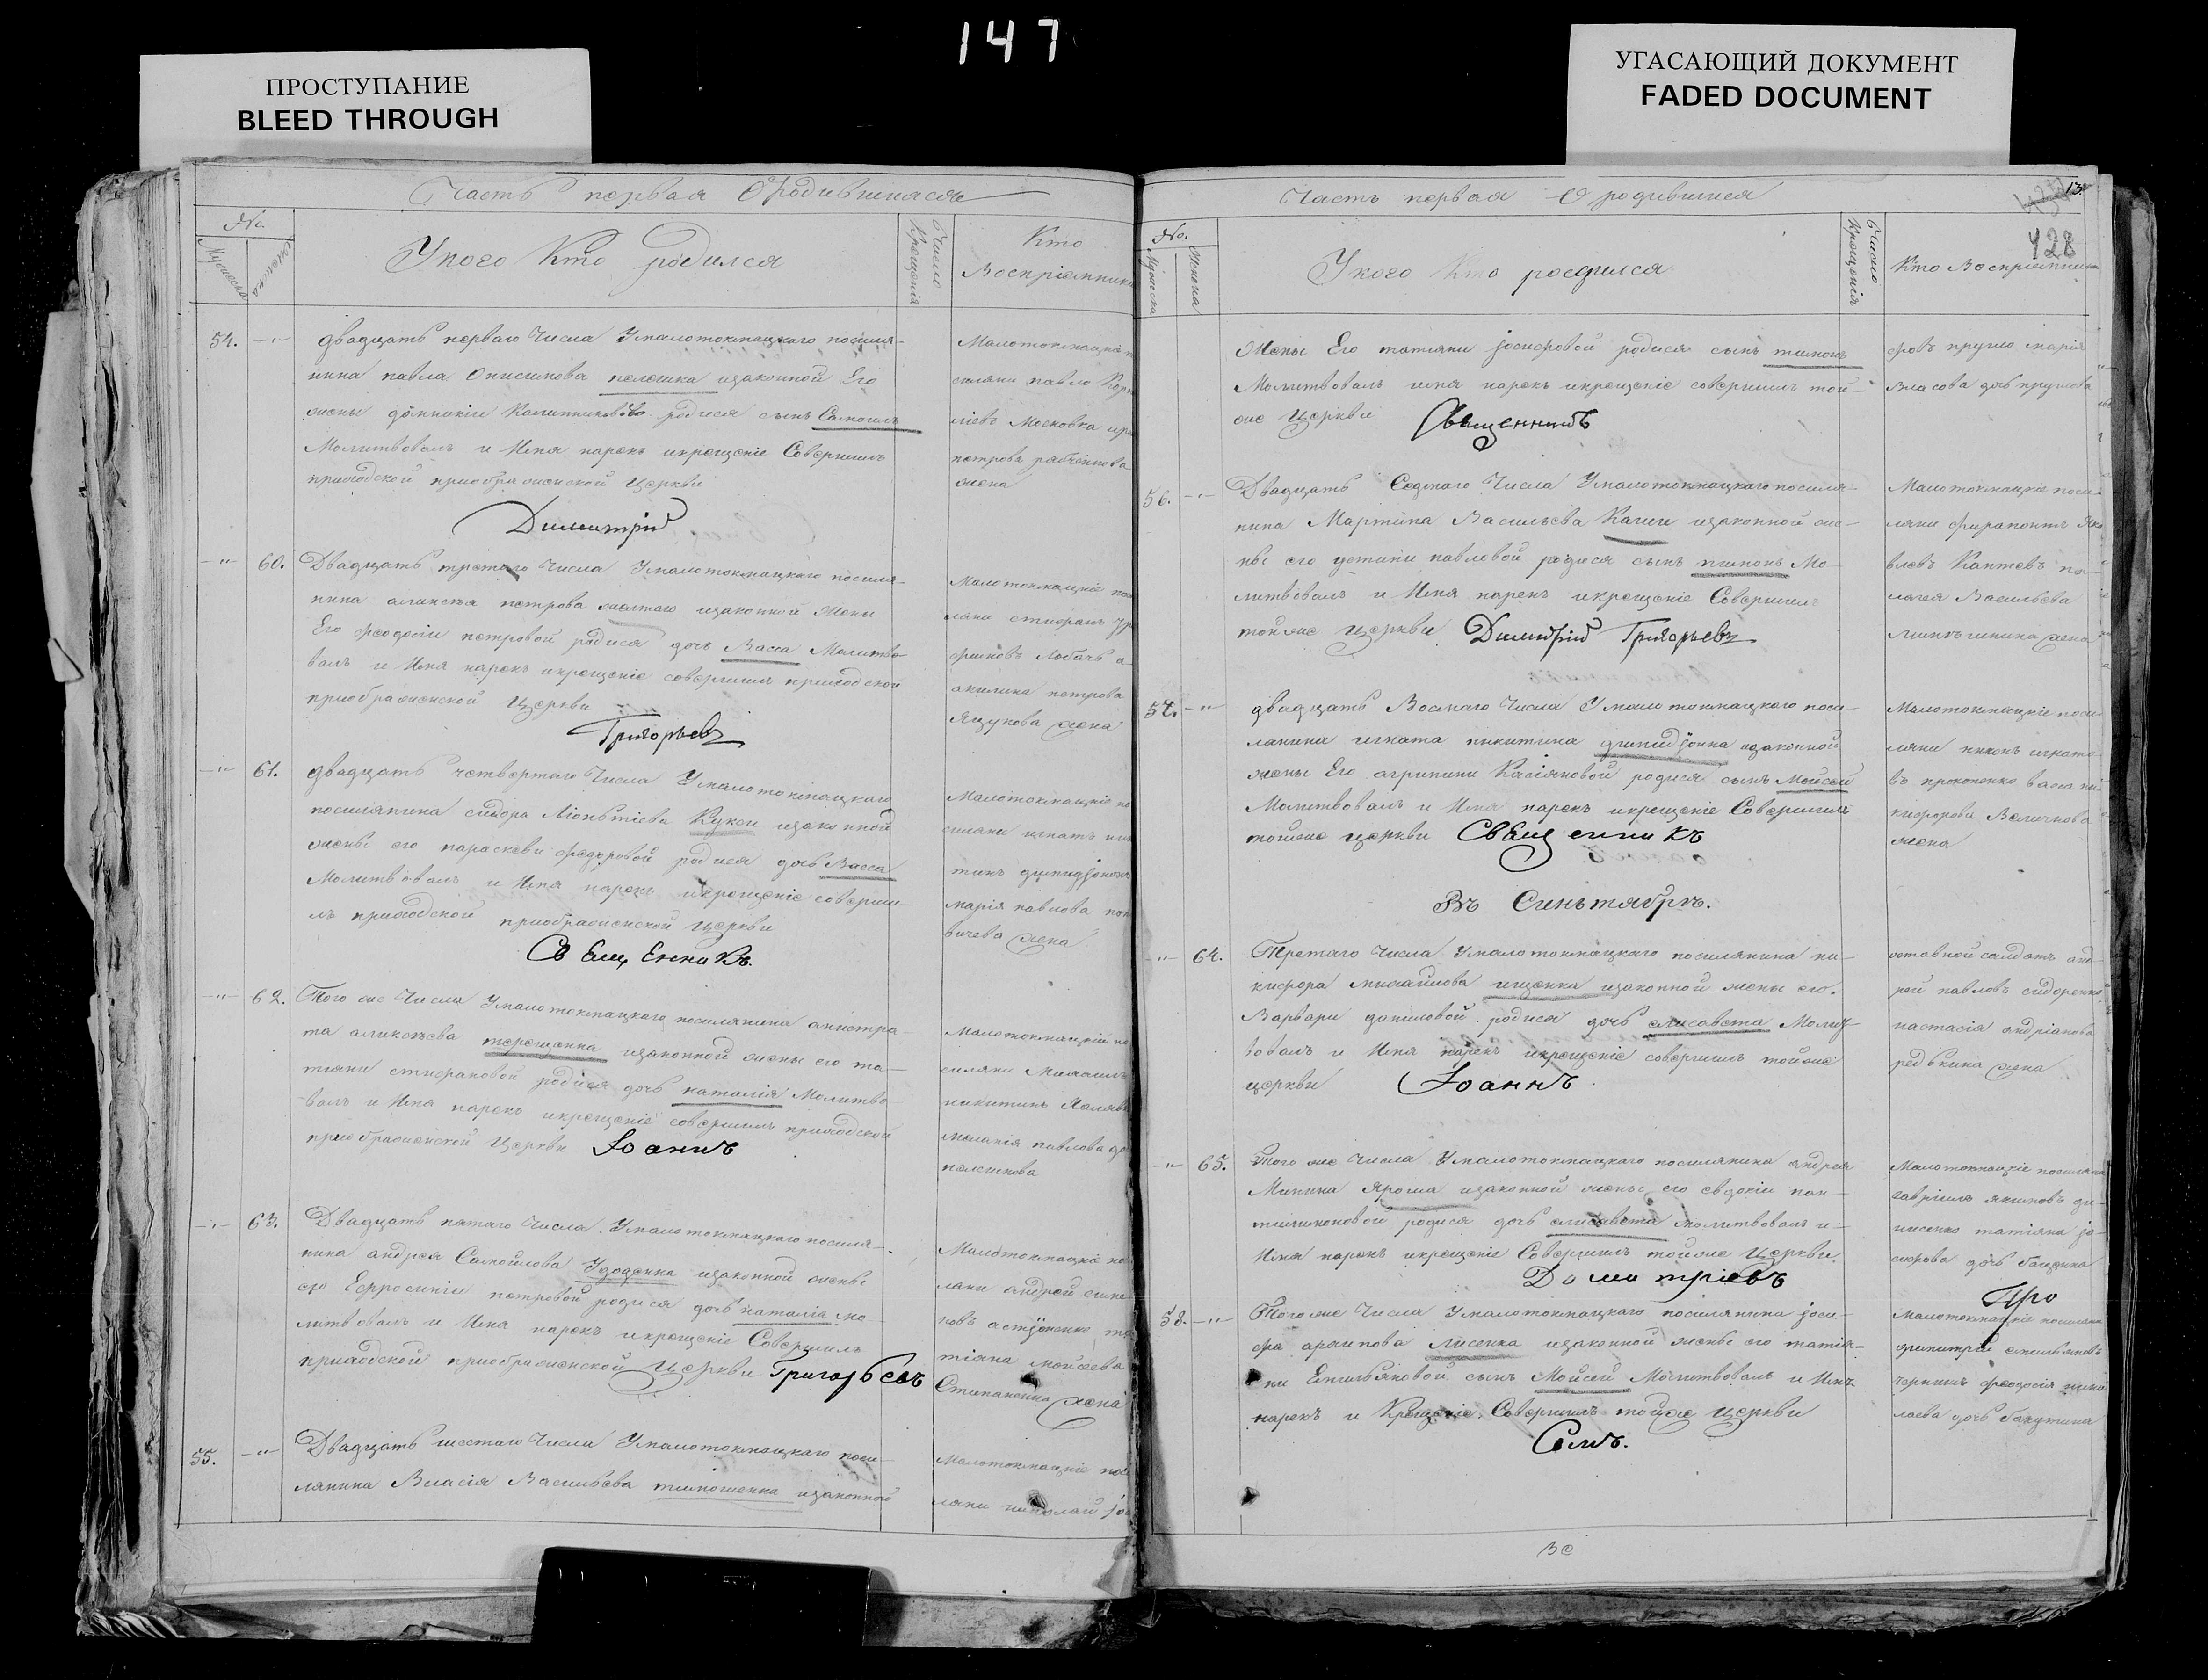 147
ПРОСТУПАНИЕ
BLEED THROUGH
УГАСАЮЩИЙ ДОКУМЕНТ
FADED DOCUMENT
Часть первая О родившихся
№.
Мужеска
Женска
У кого Кто родился
Число Крещенія
Кто
Воспріемники
54.
двадцать перваго Числа У малотокмацкаго посиля-
нина павла Онисимова пелешка изаконной Его
жены родися сынъ Самоилъ
Молитвовалъ и Имя нарекъ икрещеніе Совершилъ
приходской приображенской Церкви
Димитрій
Малотокмацкіе по
силяни павло Корн
ліевъ Московка ири
петрова рябченкова
жена
60.
Двадцать третаго Числа У малотокмацкаго посиля-
нина алексея петрова жолтаго изаконной Жены
Его феодосіи петровой родися дочь Васса Молитво-
валъ и Имя нарекъ икрещеніе совершилъ приходской
приображенской Церкви
Григорьевъ
Малотокмацкіе поси
ляни стифанъ
фимовъ Лобачъ а-
акилина петрова
Яцукова жена
61.
двадцать четвертаго Числа У малотокмацкаго
посилянина сидора Ліонтіева Кукси изаконной
жены его параскеви федоровой родися дочь Васса
Молитвовалъ и Имя нарекъ икрещеніе соверши-
лъ приходской приображенской Церкви
СвЕщЕнникъ.
Малотокмацкіе по
силяни игнатъ ники
тинъ
марія павлова поп
вичева жена
62.
Того же Числа У малотокмацкаго посилянина анистра-
та алиексѣева терещенка изаконной жены его та-
тияни стифановой родися дочь наталія Молитво-
валъ и Имя нарекъ икрещеніе совершилъ приходской
приображенской Церкви Іоаннъ
Малотокмацкій по
силяни Михаилъ
никитинъ
меланія павлова до
пелешкова
63.
Двадцать пятаго Числа У малотокмацкаго посиля-
нина андрея Самойлова Удоденка изаконной жены
его Ефросиніи петровой родися дочь наталія мо-
литвовалъ и Имя нарекъ икрещеніе Совершилъ
приходской приображенской Церкви Григорьевъ
Малотокмацкіе поси
ляни андрей
новъ
тіяна мойсеева
Степаненка жена
55.
Двадцать шестаго Числа У малотокмацкаго поси-
лянина Власія Васильева тимошенка изаконной
Малотокмацкіе поси
ляни николай іоси
Часть первая О родившихся
13
428
№.
Мужеска
Женска
У кого Кто родился
Число Крещенія
Кто Воспріемники
Жены Его татяни іосифовой родися сынъ тимонъ
Молитвовалъ имя нарекъ икрещеніе совершилъ той-
же Церкви Священникъ
фовъ пругло марія
Власова дочь пруглова
56.
Двадцать Седмаго Числа У малотокмацкаго посиля-
нина Мартина Васильева изаконной же-
ны его устини павловой родися сынъ пимонъ Мо-
литвовалъ и Имя нарекъ икрещеніе Совершилъ
тойже Церкви Димитрій Григорьевъ
Малотокмацкіе поси-
ляни ферапонтъ Яко
влевъ Каптевъ па-
лагея Васильева
жена
57.
двадцать Восмаго Числа У мало токмацкаго поси-
лянина игната никитина изаконной
жены Его агрипини Касіяновой родися сынъ Мойсей
Молитвовалъ и Имя нарекъ икрещеніе Совершилъ
тойже церкви СвЕщенникъ
Малотокмацкіе поси-
ляни никонъ игнато-
въ прокопенко васса ни-
кифорова Величкова
жена
Въ Сентябрѣ.
64.
Третаго Числа У малотокмацкаго посилянина ни-
кифора михайлова ищенка изаконной жены его.
Варвари даниловой родися дочь елисавета Молит-
вовалъ и Имя нарекъ икрещеніе совершилъ тойже
церкви Іоаннъ
оставной салдатъ анд-
рей павловъ сидоренко
настасія андріанова
редькина жена
65.
Того же Числа У малотокмацкаго посилянина андрея
Минина Яроша изаконной жены его евдокіи пан-
тилимоновой родися дочь елисавета молитвовалъ и-
Имя нарекъ икрещеніе Совершилъ тойже Церкви.
Дометріевъ
Малотокмацкіе посиляни
гавріилъ якимовъ ди-
нисенко татіяна іо-
сифова дочь бащенка
Про
58.
Того же Числа У малотокмацкаго посилянина іоси-
фа архипова Лисенка изаконной жены его татія-
ни Емильяновой сынъ Мойсей Молитвовалъ и Имя
нарекъ и Крещеніе Совершилъ тойже Церкви
Малотокмацкіе посиляни
димитрій емильяновъ
чернишъ феодосія нико
лаева дочь бакутина